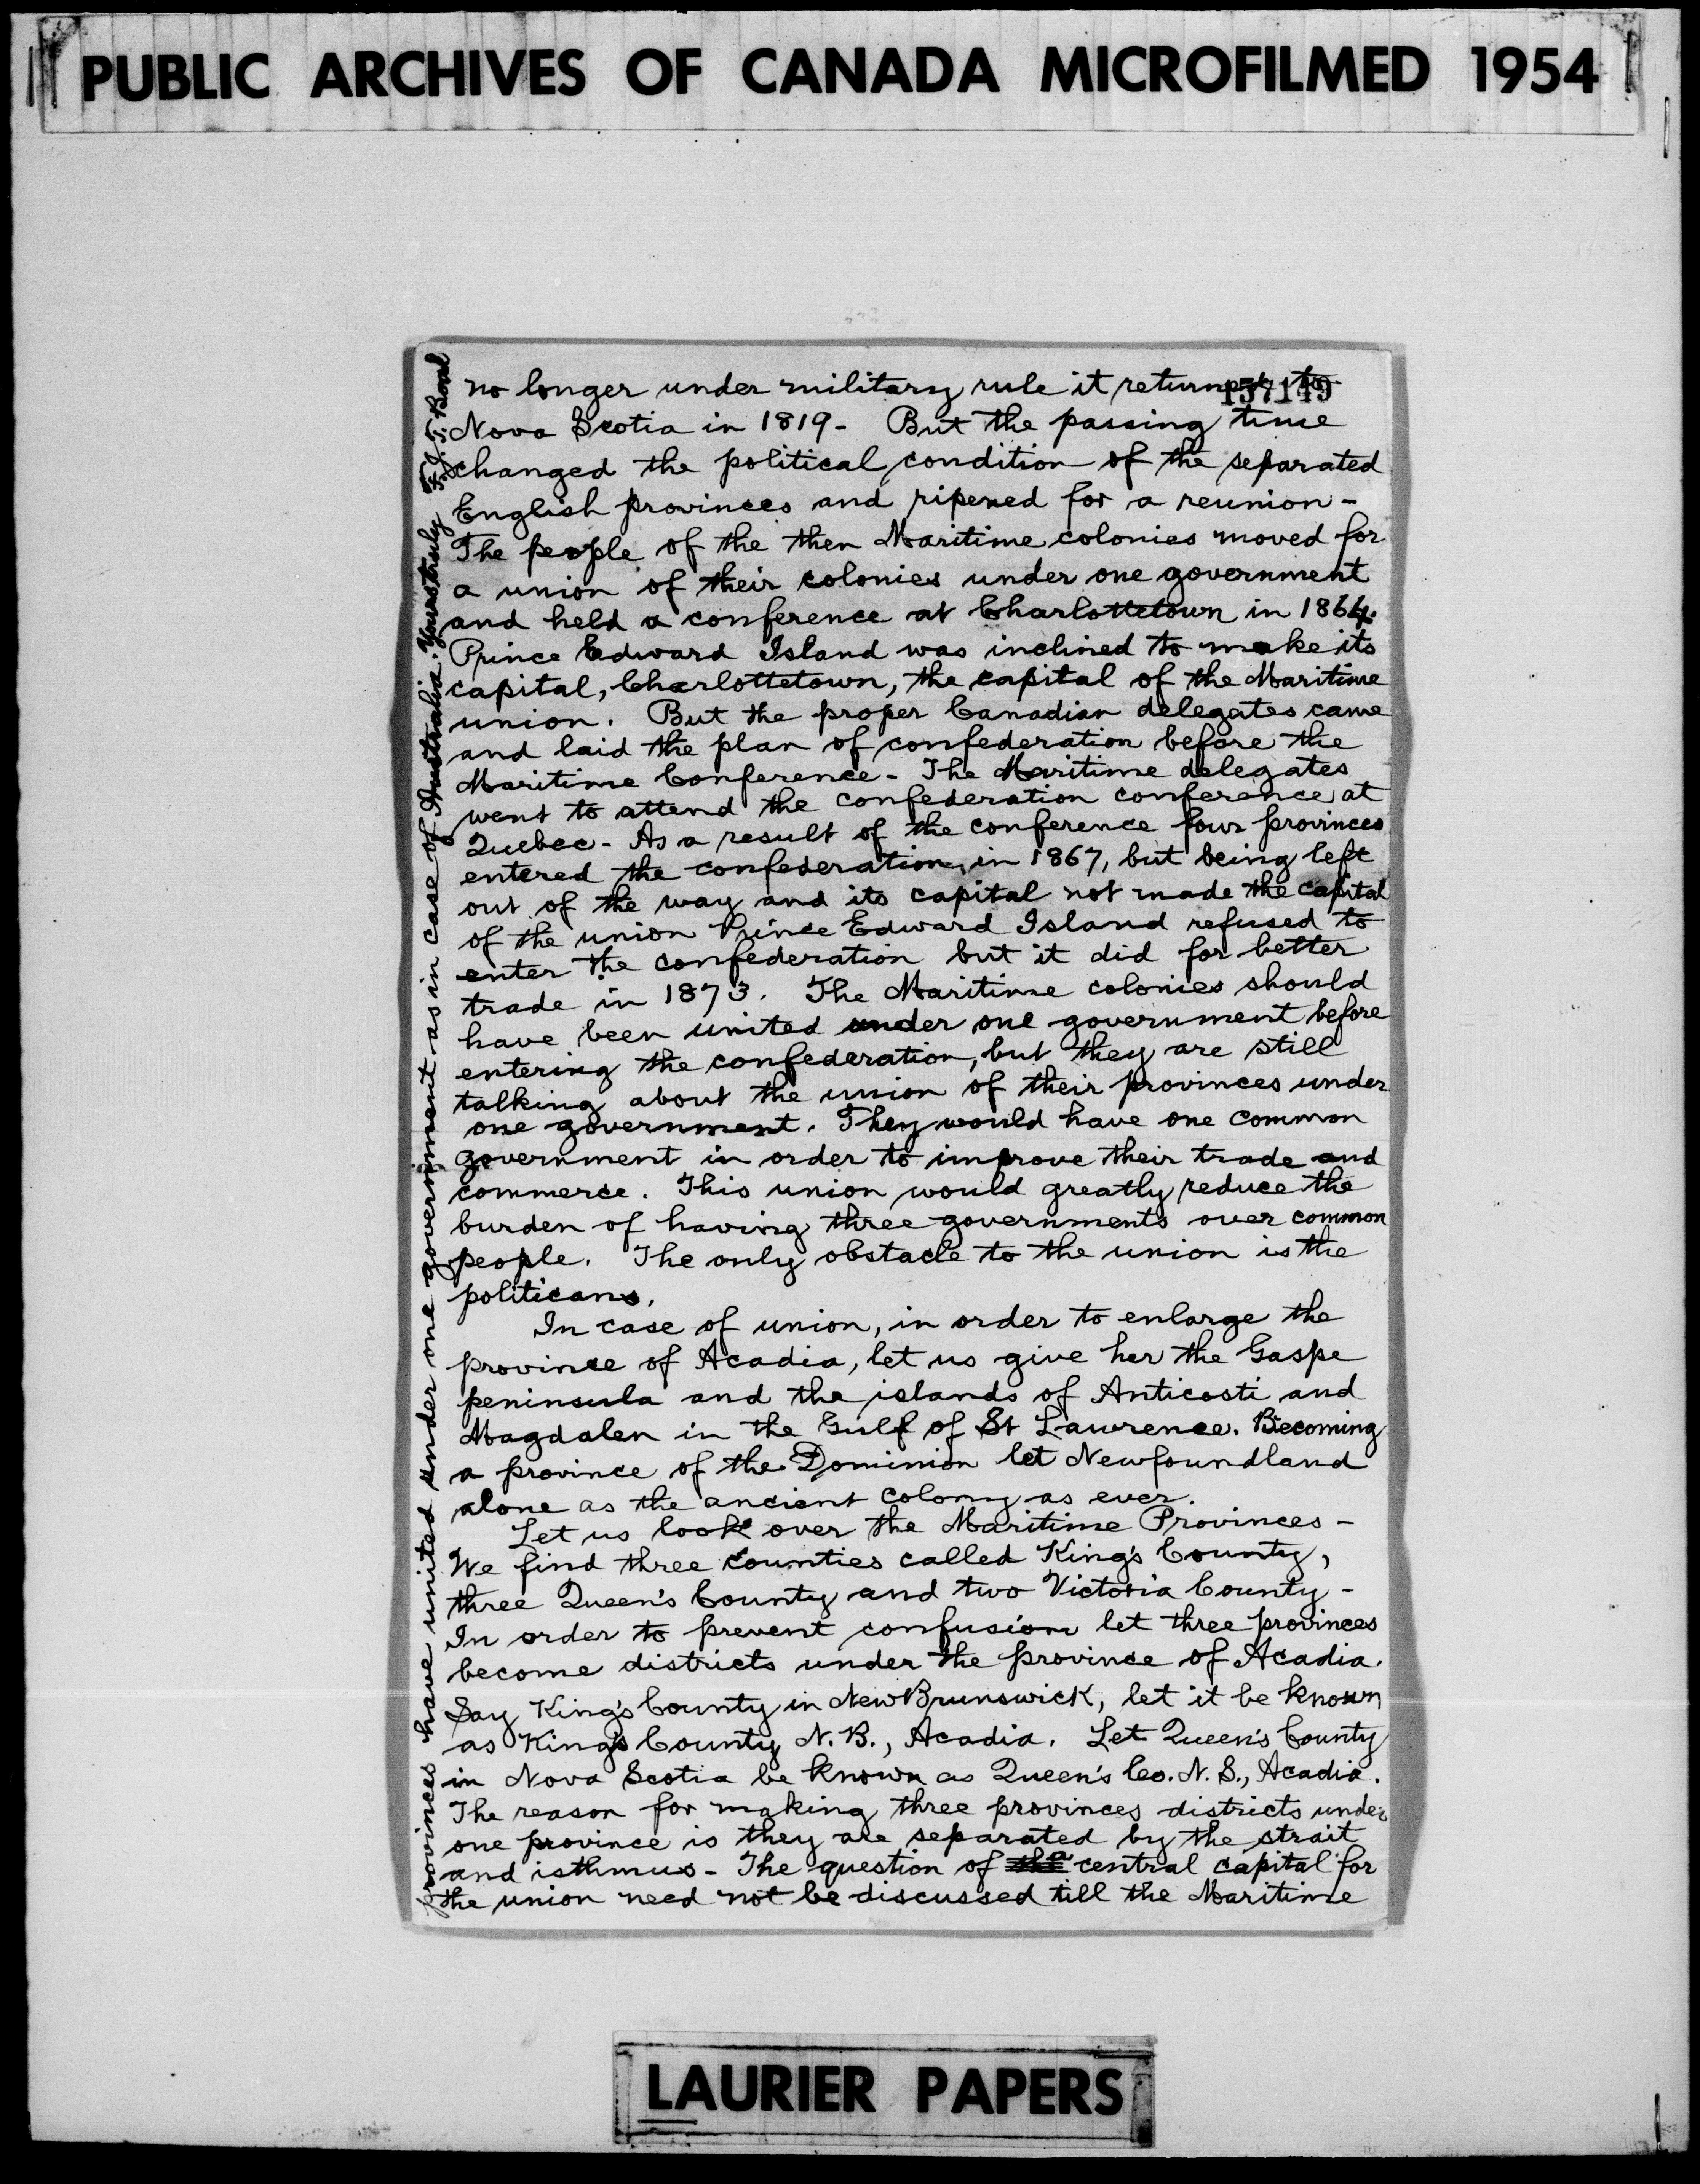 PUBLIC ARCHIVES OF CANADA MICROFILMED 1954
no longer under military rule it returned to
157149
Nova Scotia in 1819- But the passing time
changed the political condition of the separated
English provinces and ripened for a reunion-
The people of the then Maritime colonies moved for
a union of their colonies under one government
and held a conference at Charlottetown in 1864.
Prince Edward Island was inclined to make its
capital, Charlottetown, the capital of the Maritime
union. But the proper Canadian delegates came
and laid the plan of confederation before the
Maritime Conference- The Maritime delegates
went to attend the confederation conference at
Quebec- As a result of the conference four provinces
entered the confederation, in 1867, but being left
out of the way and its capital not made the capital
of the union Prince Edward Island refused to
enter the confederation but it did for better
trade in 1873. The Maritime colonies should
have been united under one government before
entering the confederation, but they are still
talking about the union of their provinces under
one government. They would have one common
government in order to improve their trade and
commerce. This union would greatly reduce the
burden of having three governments over common
people. The only obstacle to the union is the
politicans.
In case of union, in order to enlarge the
province of Acadia, let us give her the Gaspe
peninsula and the islands of Anticosti and
Magdalen in the Gulf of St Lawrence. Becoming
a province of the Dominion let Newfoundland
alone as the ancient colony as ever.
Let us look over the Maritime Provinces-
We find three counties called King's County,
three Queen's County and two Victoria County-
In order to prevent confusion let three provinces
become districts under the province of Acadia.
Say King's County in New Brunswick, let it be known
as King's County N. B., Acadia. Let Queen's County
in Nova Scotia be known as Queen's Co. N. S., Acadia.
The reason for making three provinces districts under
one province is they are separated by the strait
and isthmus- The question of the a central capital for
the union need not be discussed till the Maritime
provinces have united under one government as in case of Australia. Yours truly F. J. T. Boal
LAURIER PAPERS